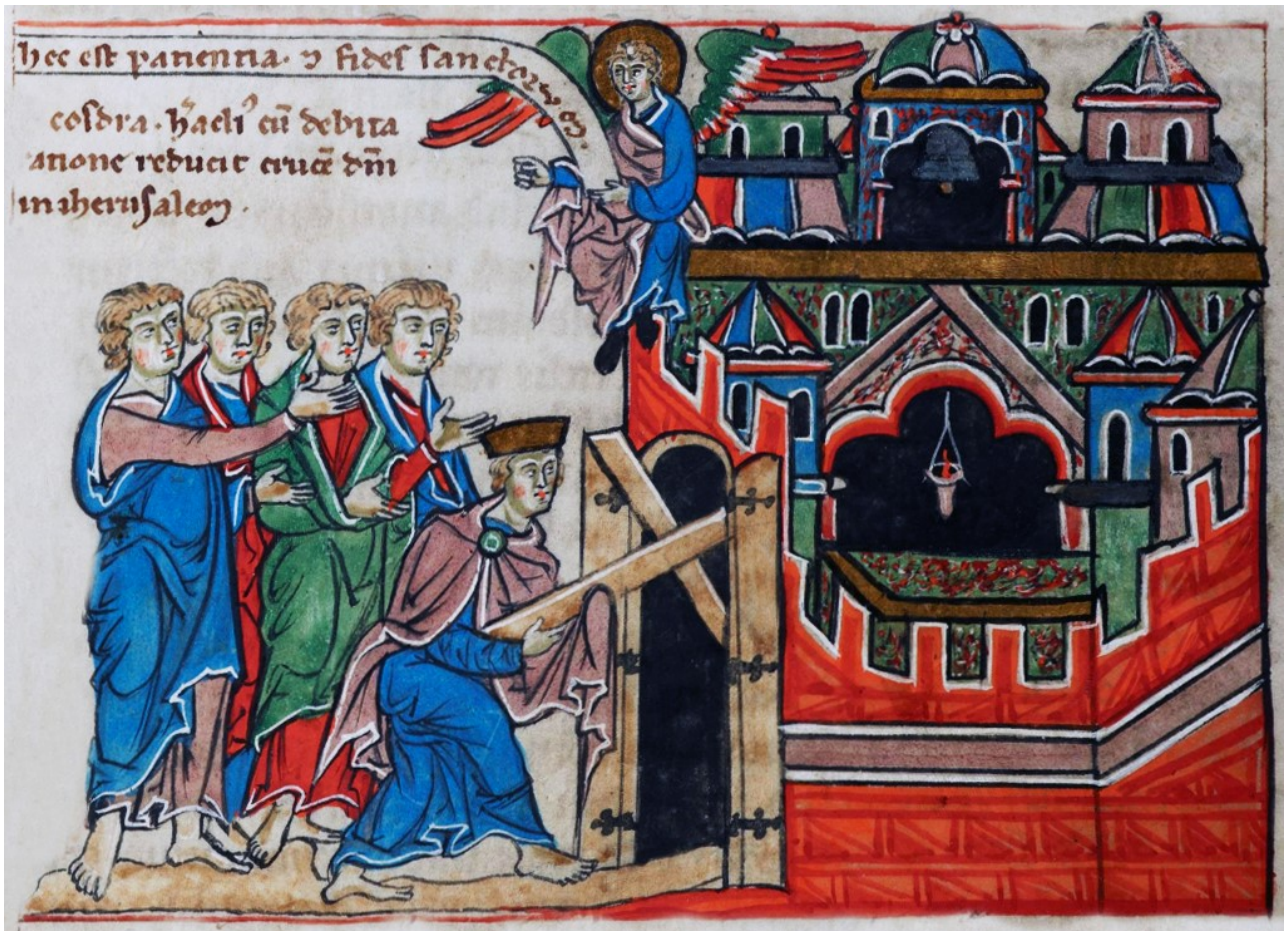 hec est patientia · ⁊ fides sanctorum ·
cosdra · h̄acliꝰ cū debita
atione reducit crucē dn̄i
in iherusalem ·